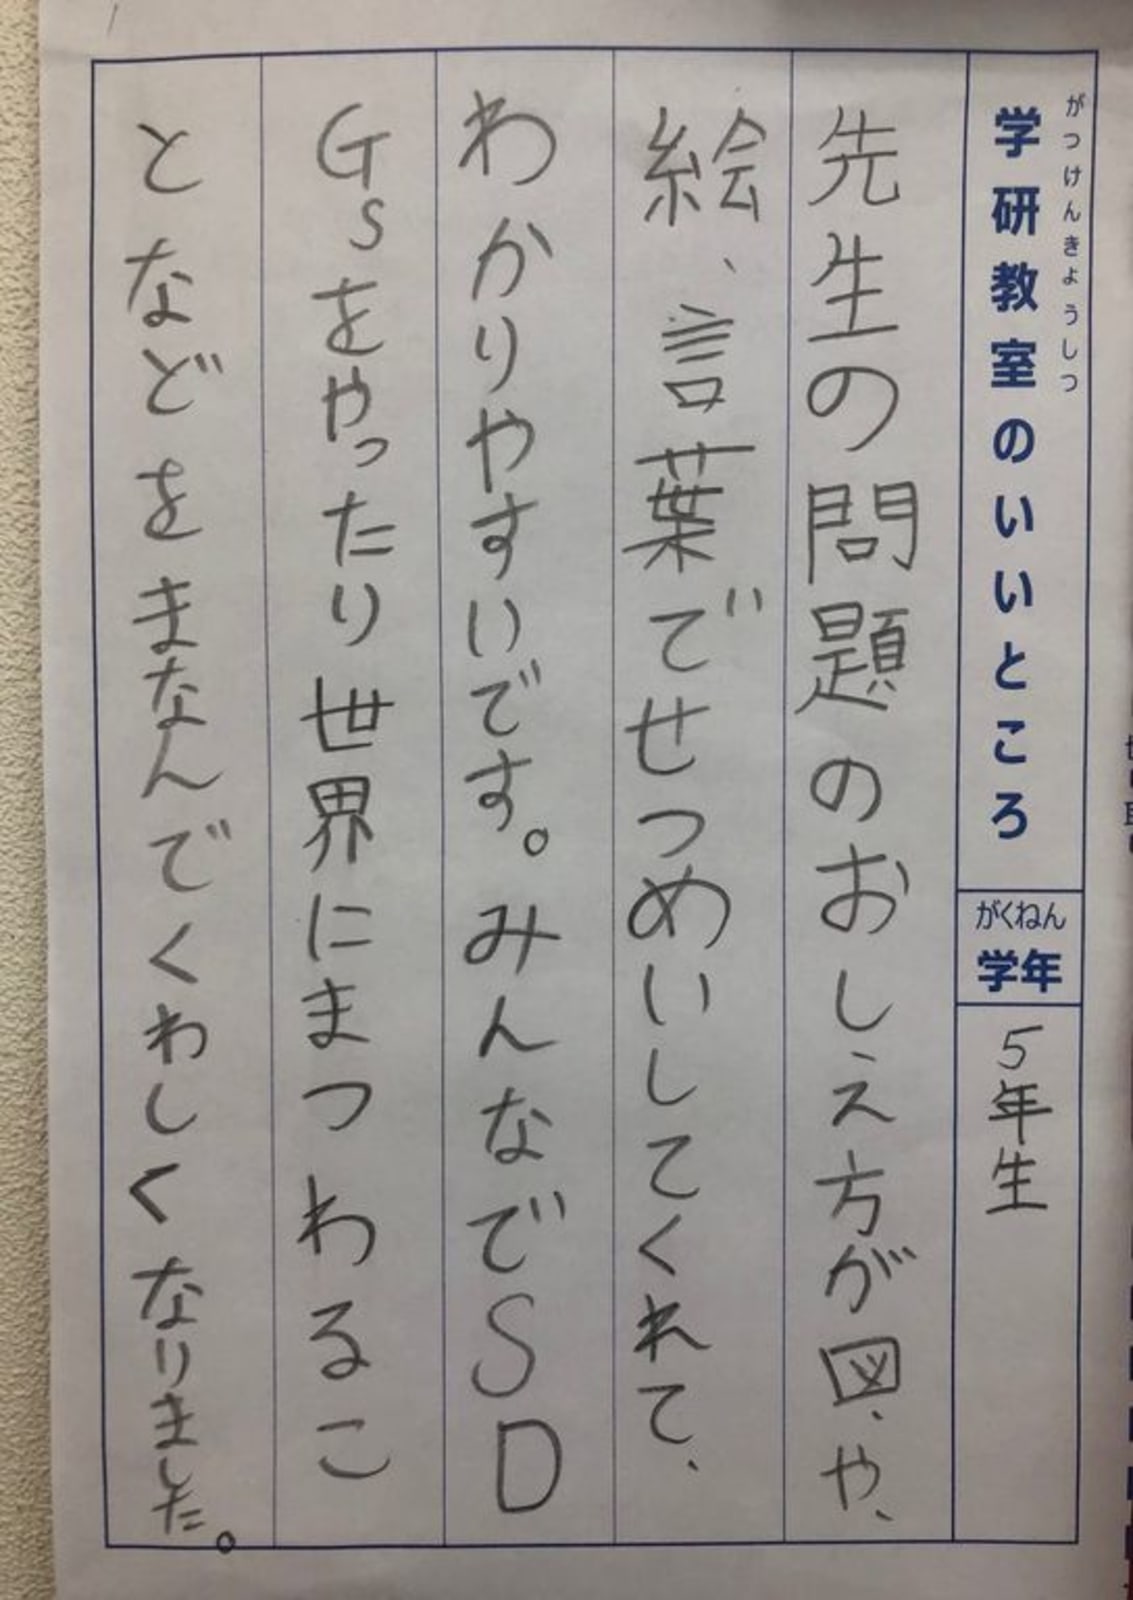 がっけんきょうしつ
学研教室のいいところ
がくねん
学年
5年生
先生の問題のおしえ方が図、や、
絵、言葉でせつめいしてくれて、
わかりやすいです。みんなでSD
Gsをやったり世界にまつわるこ
となどをまなんでくわしくなりました。